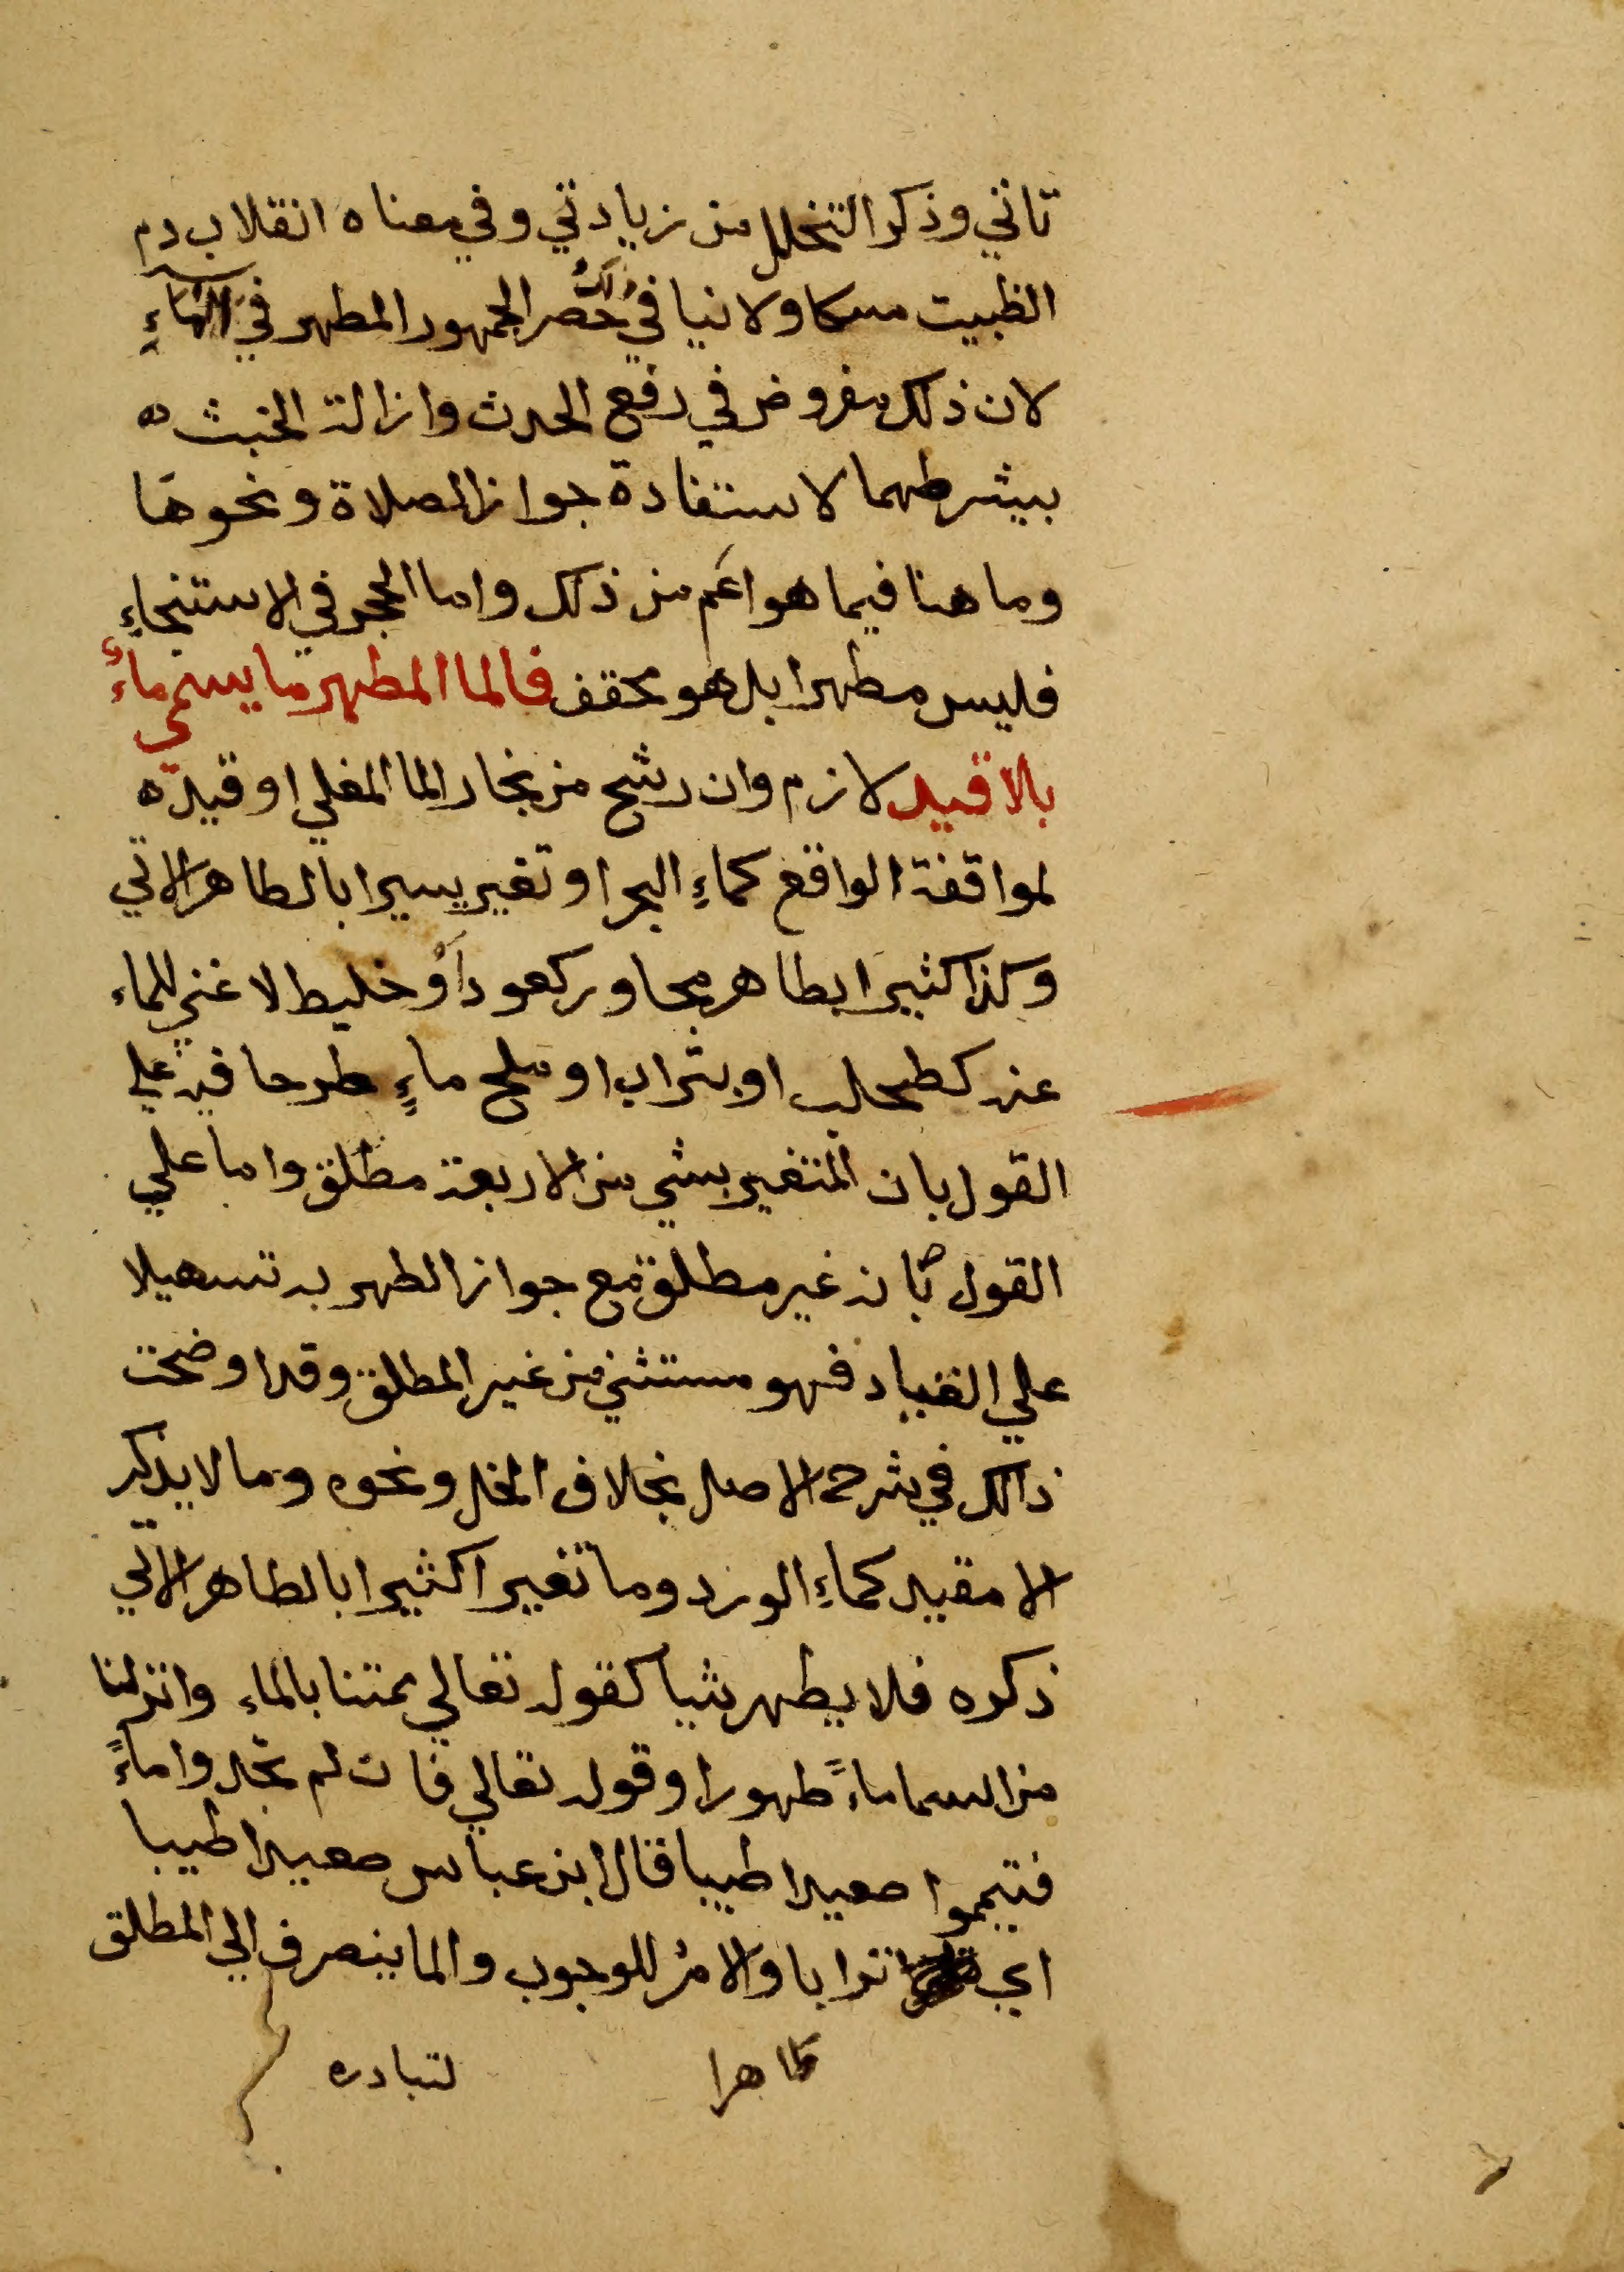 تاتي وذكر التخلل من زيادتي وفي معناه انقلاب دم
الظبيت مسكا ولا نيا في ذلك حصر الجمهور المطهر في الماءِ
لان ذلك مفروض في رفع الحدث وازالة الخبث ه
ببشرطهما لاستفادة جواز الصلاة ونحوها
وما هنا فيما هو اعَم من ذلك واما الحجر في الاستنجاءِ
فليس مطهرا بل هو مخفف فالما المطهر ما يسمي ماءً
بلا قيد لازم وان رشح من بخار الما المغلي او قيد ه
لموافقة الواقع كماءِ البحر او تغير يسيرا بالطاهر الاتي
وكذا كثيرا بطاهر مجاور كعود اَو خليط لا غني للماء
عنه كطحلب او بتراب او ملح ماءٍ طرحا فيه علي
القول بان المتغير بشي من الاربعة مطلق واما علي
القول بانه غير مطلق مع جواز الطهر به تسهيلا
علي العباد فهو مستثني من غير المطلق وقد اوضحت
ذالك في شرح الاصل بخلاف الخل ونحوه وما لا يذكر
الا مقيد كماءِ الورد وما تغير اكثيرا بالطاهر الاتي
ذكره فلا يطهر شيا كقوله تعالي ممتنا بالماء وانزلنا
من السما ماءً طهورا وقوله تعالي فان لم تجدوا ماءً
فتيمموا صعيدا طيبا قال ابن عباس صعيدا طيبا
اي ترابا والامر للوجوب والما ينصرف الي المطلق
ظاهرا لتبادره